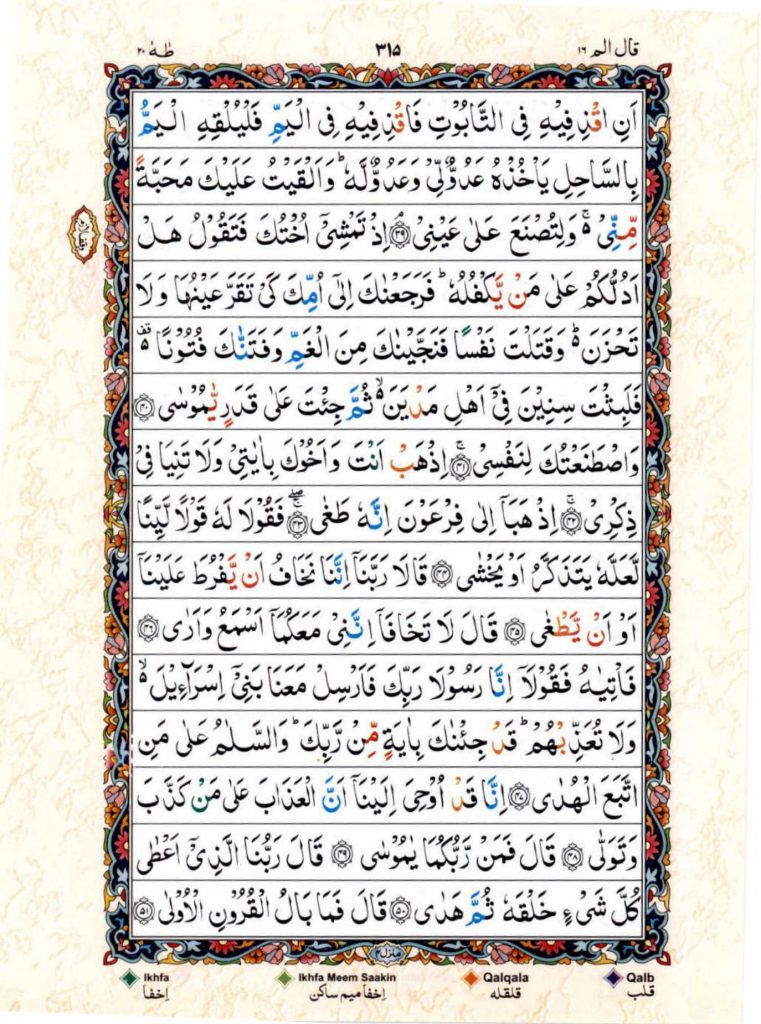 قال الم ١٦ ٣١٥ طٰهٰ ٢٠
اَنِ اقْذِفِيْهِ فِى التَّابُوْتِ فَاقْذِفِيْهِ فِى الْيَمِّ فَلْيُلْقِهِ الْيَمُّ
بِالسَّاحِلِ يَاْخُذْهُ عَدُوٌّ لِّىْ وَعَدُوٌّ لَّهٗ ؕ وَاَلْقَيْتُ عَلَيْكَ مَحَبَّةً
مِّنِّىْ ۚ۬ وَلِتُصْنَعَ عَلٰى عَيْنِىْ ۘ﴿۳۹﴾ اِذْ تَمْشِىْۤ اُخْتُكَ فَتَقُوْلُ هَلْ
اَدُلُّكُمْ عَلٰى مَنْ يَّكْفُلُهٗ ؕ فَرَجَعْنٰكَ اِلٰٓى اُمِّكَ كَىْ تَقَرَّ عَيْنُهَا وَلَا
تَحْزَنَ ؕ۬ وَقَتَلْتَ نَفْسًا فَنَجَّيْنٰكَ مِنَ الْغَمِّ وَفَتَنّٰكَ فُتُوْنًا ۬ۥ قف
فَلَبِثْتَ سِنِيْنَ فِىْۤ اَهْلِ مَدْيَنَ ۙ۬ ثُمَّ جِئْتَ عَلٰى قَدَرٍ يّٰمُوْسٰى ﴿۴۰﴾
وَاصْطَنَعْتُكَ لِنَفْسِىْ ۚ﴿۴۱﴾ اِذْهَبْ اَنْتَ وَاَخُوْكَ بِاٰيٰتِىْ وَلَا تَنِيَا فِىْ
ذِكْرِىْ ۚ﴿۴۲﴾ اِذْهَبَاۤ اِلٰى فِرْعَوْنَ اِنَّهٗ طَغٰى ۚۖ﴿۴۳﴾ فَقُوْلَا لَهٗ قَوْلًا لَّيِّنًا
لَّعَلَّهٗ يَتَذَكَّرُ اَوْ يَخْشٰى ﴿۴۴﴾ قَالَا رَبَّنَاۤ اِنَّنَا نَخَافُ اَنْ يَّفْرُطَ عَلَيْنَاۤ
اَوْ اَنْ يَّطْغٰى ﴿۴۵﴾ قَالَ لَا تَخَافَاۤ اِنَّنِىْ مَعَكُمَاۤ اَسْمَعُ وَاَرٰى ﴿۴۶﴾
فَاْتِيٰهُ فَقُوْلَاۤ اِنَّا رَسُوْلَا رَبِّكَ فَاَرْسِلْ مَعَنَا بَنِىْۤ اِسْرَآءِيْلَ ۙ۬
وَلَا تُعَذِّبْهُمْ ؕ قَدْ جِئْنٰكَ بِاٰيَةٍ مِّنْ رَّبِّكَ ؕ وَالسَّلٰمُ عَلٰى مَنِ
اتَّبَعَ الْهُدٰى ﴿۴۷﴾ اِنَّا قَدْ اُوْحِىَ اِلَيْنَاۤ اَنَّ الْعَذَابَ عَلٰى مَنْ كَذَّبَ
وَتَوَلّٰى ﴿۴۸﴾ قَالَ فَمَنْ رَّبُّكُمَا يٰمُوْسٰى ﴿۴۹﴾ قَالَ رَبُّنَا الَّذِىْۤ اَعْطٰى
كُلَّ شَىْءٍ خَلْقَهٗ ثُمَّ هَدٰى ﴿۵۰﴾ قَالَ فَمَا بَالُ الْقُرُوْنِ الْاُوْلٰى ﴿۵۱﴾
منزل ٤
Ikhfa Ikhfa Meem Saakin Qalqala Qalb
اِخفا اِخفا میم ساکن قلقله قلب